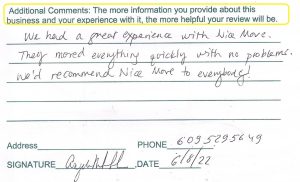 Additional Comments: The more information you provide about this
business and your experience with it, the more helpful your review will be.
We had a great experience with Nice Move.
They moved everything quickly with no problems.
We'd recommend Nice Move to everybody!
Address PHONE 6095295649
SIGNATURE DATE 6/8/22